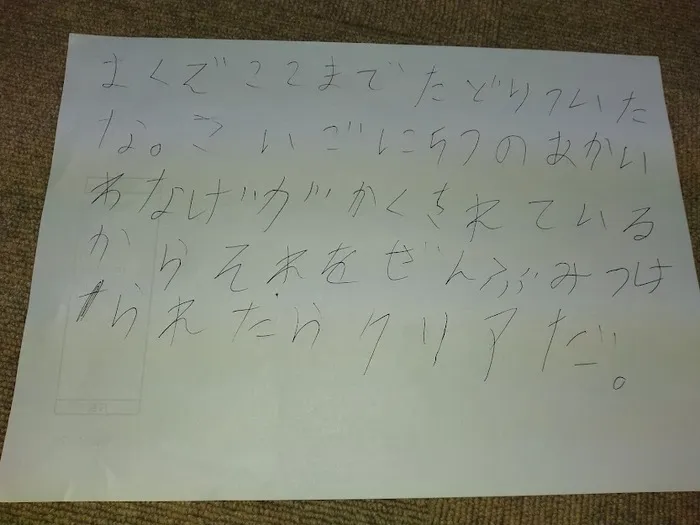 よくぞここまでたどりついた
な。さいごに5つのあかい
わなげがかくされている
からそれをぜんぶみつけ
られたらクリアだ。